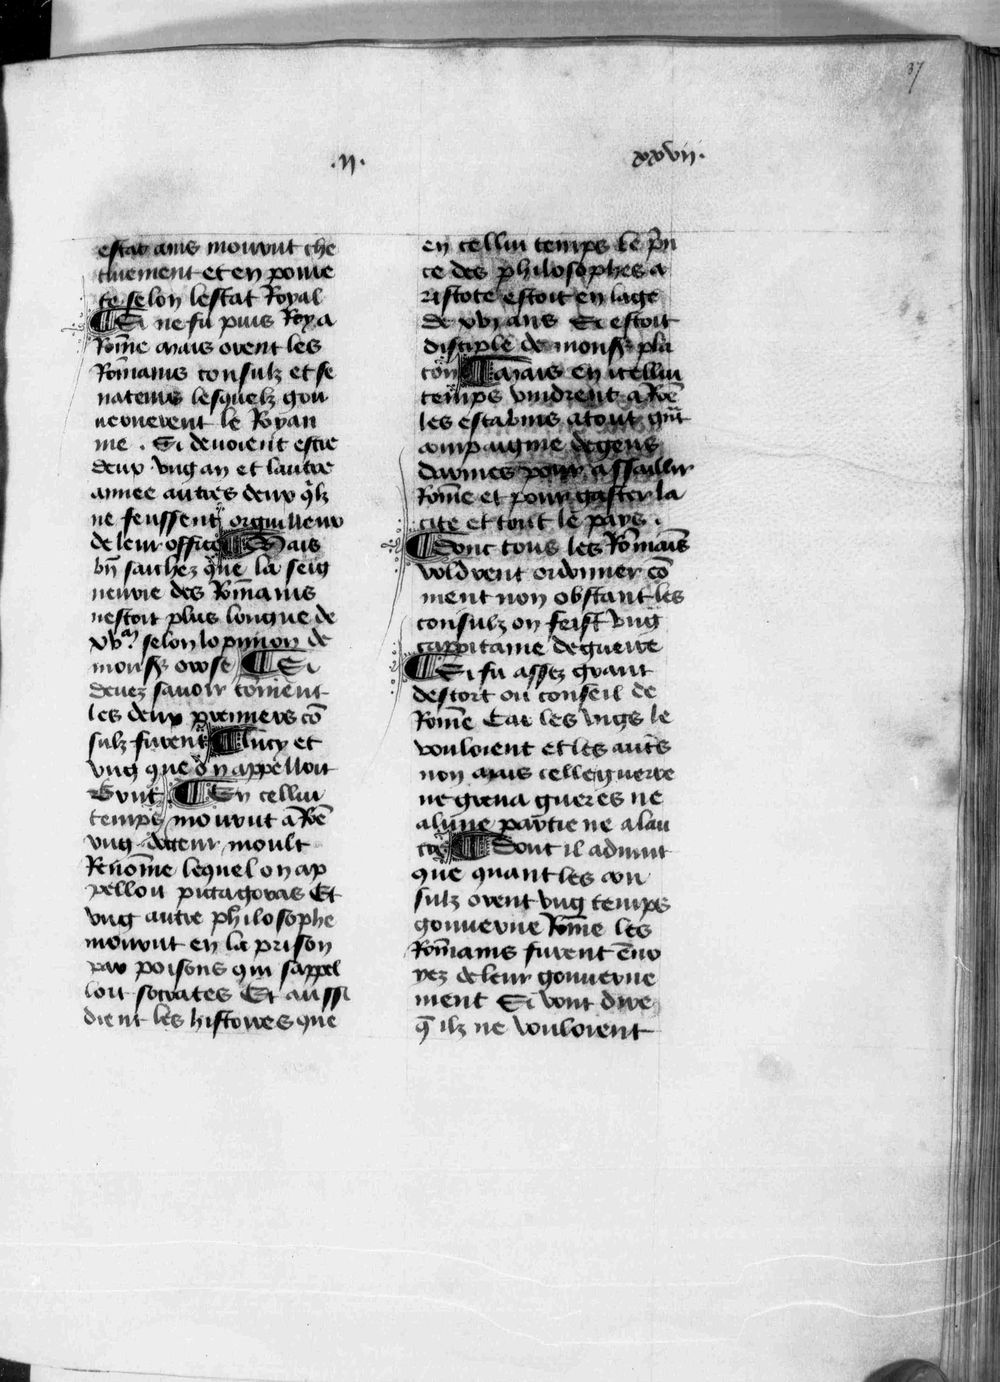 37
.II.
xxvii.
estat ains mourut che
tiuement et en poure
te selon lestat Royal
¶ Si ne fu puis Roy a
Rom̄e mais orent les
Rom̄ains consulz et se
nateurs lesquelz gou
uernerent le Royau
me . Si deuoient estre
deux vng an et lautre
annee autres deux q̄lz
ne feussent orguilleux
de leur office ¶ Mais
bn̄ saichez que la seig
neurie des Rom̄ains
nestoit plus longue de
xv. selon lopinion de
monsr̄ orose ¶ Si
deuez sauoir com̄ent
les deux premiers cō
sulz furent ¶ lucy et
vng que on appelloit
brut ¶ En cellui
temps mourut a Rōe
vng docteur moult
Renom̄e lequel on ap
pelloit pictagoras Et
vng autre philosophe
mourut en la prison
par poisons qui sappel
loit socrates Et aussi
dient les histoires que
en cellui temps le p̄ri
ce des philosophes a
ristote estoit en lage
de xvij ans Si estoit
disciple de monsr̄ pla
ton ¶ Mais en icellui
temps vindrent a Rōe
les estabins atout gn̄t
compaignie de gens
darmes pour assaillir
Rom̄e et pour gaster la
cite et tout le pays .
¶ Donc tous les Rom̄ains
voldrent ordonner cō
ment non obstant les
consulz on feist vng
cappitaine de guerre
¶ Si fu assez grant
destort ou conseil de
Rom̄e Car les vngs le
vouloient et les autr̄s
non mais celle guerre
ne greua gueres ne
a lune partie ne a lau
tre ¶ Dont il aduint
que quant les con
sulz orent vng temps
gouuerne Rom̄e les
Rom̄ains furent ēnuo
yez de leur gouuerne
ment Si vont dire
q̄ ilz ne vouloient